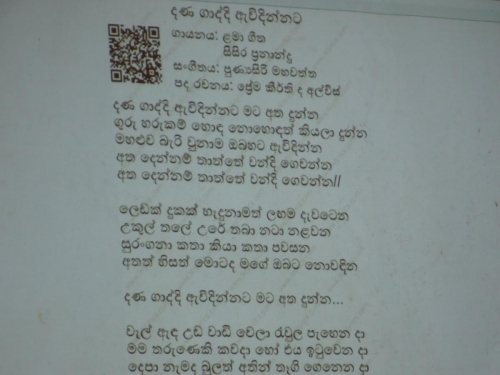 දණ ගාද්දි ඇවිදින්නට
ගායනය: ළමා ගීත
සිසිර ප්‍රනාන්දු
සංගීතය: පුණ්‍යසිරි මහවත්ත
පද රචනය: ප්‍රේම කීර්ති ද අල්විස්
දණ ගාද්දි ඇවිදින්නට මට අත දුන්න
ගුරු හරුකම් හොඳ නොහොඳත් කියලා දුන්න
මහළුව බැරි වුනාම ඔබහට ඇවිදින්න
අත දෙන්නම් තාත්තේ වන්දි ගෙවන්න
අත දෙන්නම් තාත්තේ වන්දි ගෙවන්න//
ලෙඩක් දුකක් හැදුනාමත් ලඟම දැවටෙන
උකුල් තලේ උරේ තබා නටා නළවන
සුරංගනා කතා කියා කතා පවසන
අතත් හිසත් මොටද මගේ ඔබට නොවඳින
දණ ගාද්දි ඇවිදින්නට මට අත දුන්න...
වැල් ඇඳ උඩ වාඩි වෙලා රැවුල පැහෙන දා
මම තරුණෙකි කවදා හෝ එය ඉටුවෙන දා
දෙපා නැමද බුලත් අතින් තෑගි ගෙනෙන දා